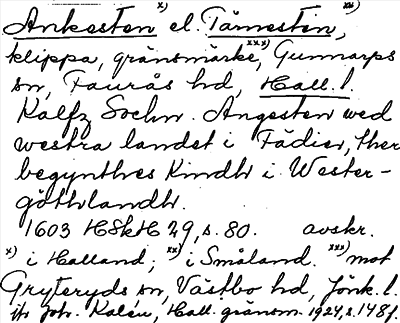 Ankesten x) el. Tärnestin xx),
klippa, gränsmärke, xxx) Gunnarps
sn, Faurås hd, Hall. l.
Kalfz Sochn. Angesten wed
westra landet i Fädier, ther
begynthes Kindh i Wester-
göthlandh.
1603 HSkH 29, s. 80. avskr.
x) i Halland; xx) i Småland. xxx) mot
Gryteryds sn, Västbo hd, Jönk. l.
jfr Joh. Kalén, Hall. gränsm. 1924, s. 148 f.